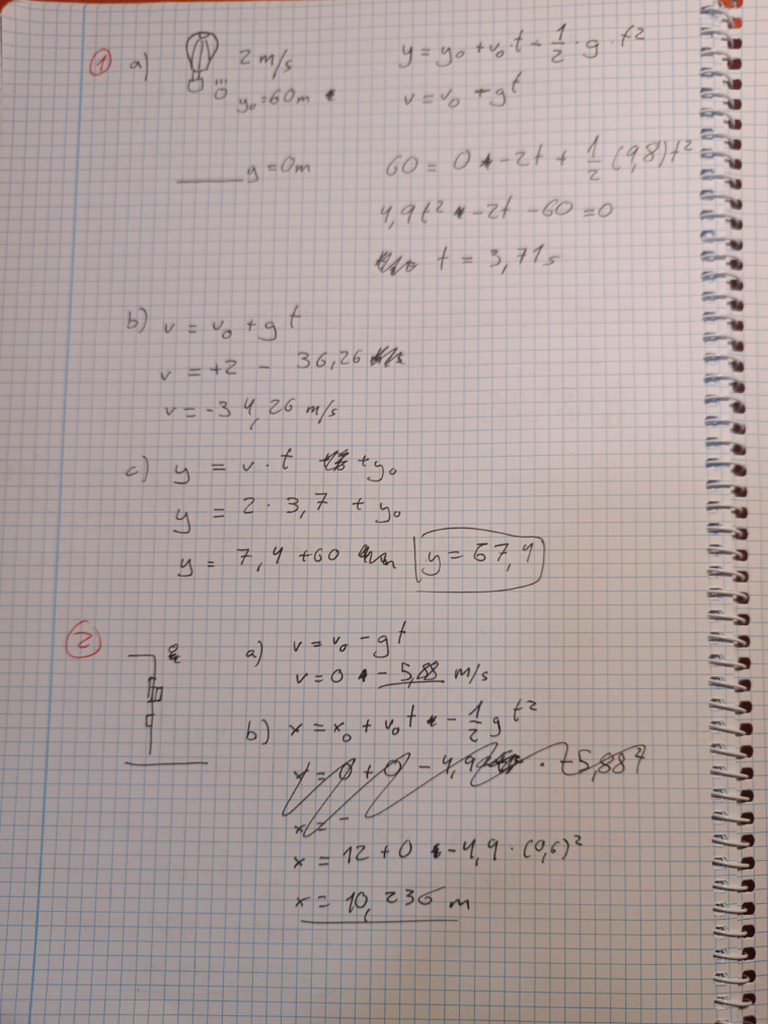 ① a) 2 m/s y = y₀ + v₀·t - 1/2 · g · t²
y₀ = 60m v = v₀ + gt
y = 0m 60 = 0 - 2t + 1/2 (9,8)t²
4,9t² - 2t - 60 = 0
t = 3,71s
b) v = v₀ + gt
v = +2 - 36,26
v = -34,26 m/s
c) y = v · t + y₀
y = 2 · 3,7 + y₀
y = 7,4 + 60 y = 67,4
② a) v = v₀ - gt
v = 0 - 5,88 m/s
b) x = x₀ + v₀t - 1/2 g t²
x = 0 + 0 - 4,9 · (-5,88²
x = -
x = 12 + 0 - 4,9 · (0,6)²
x = 10,236 m